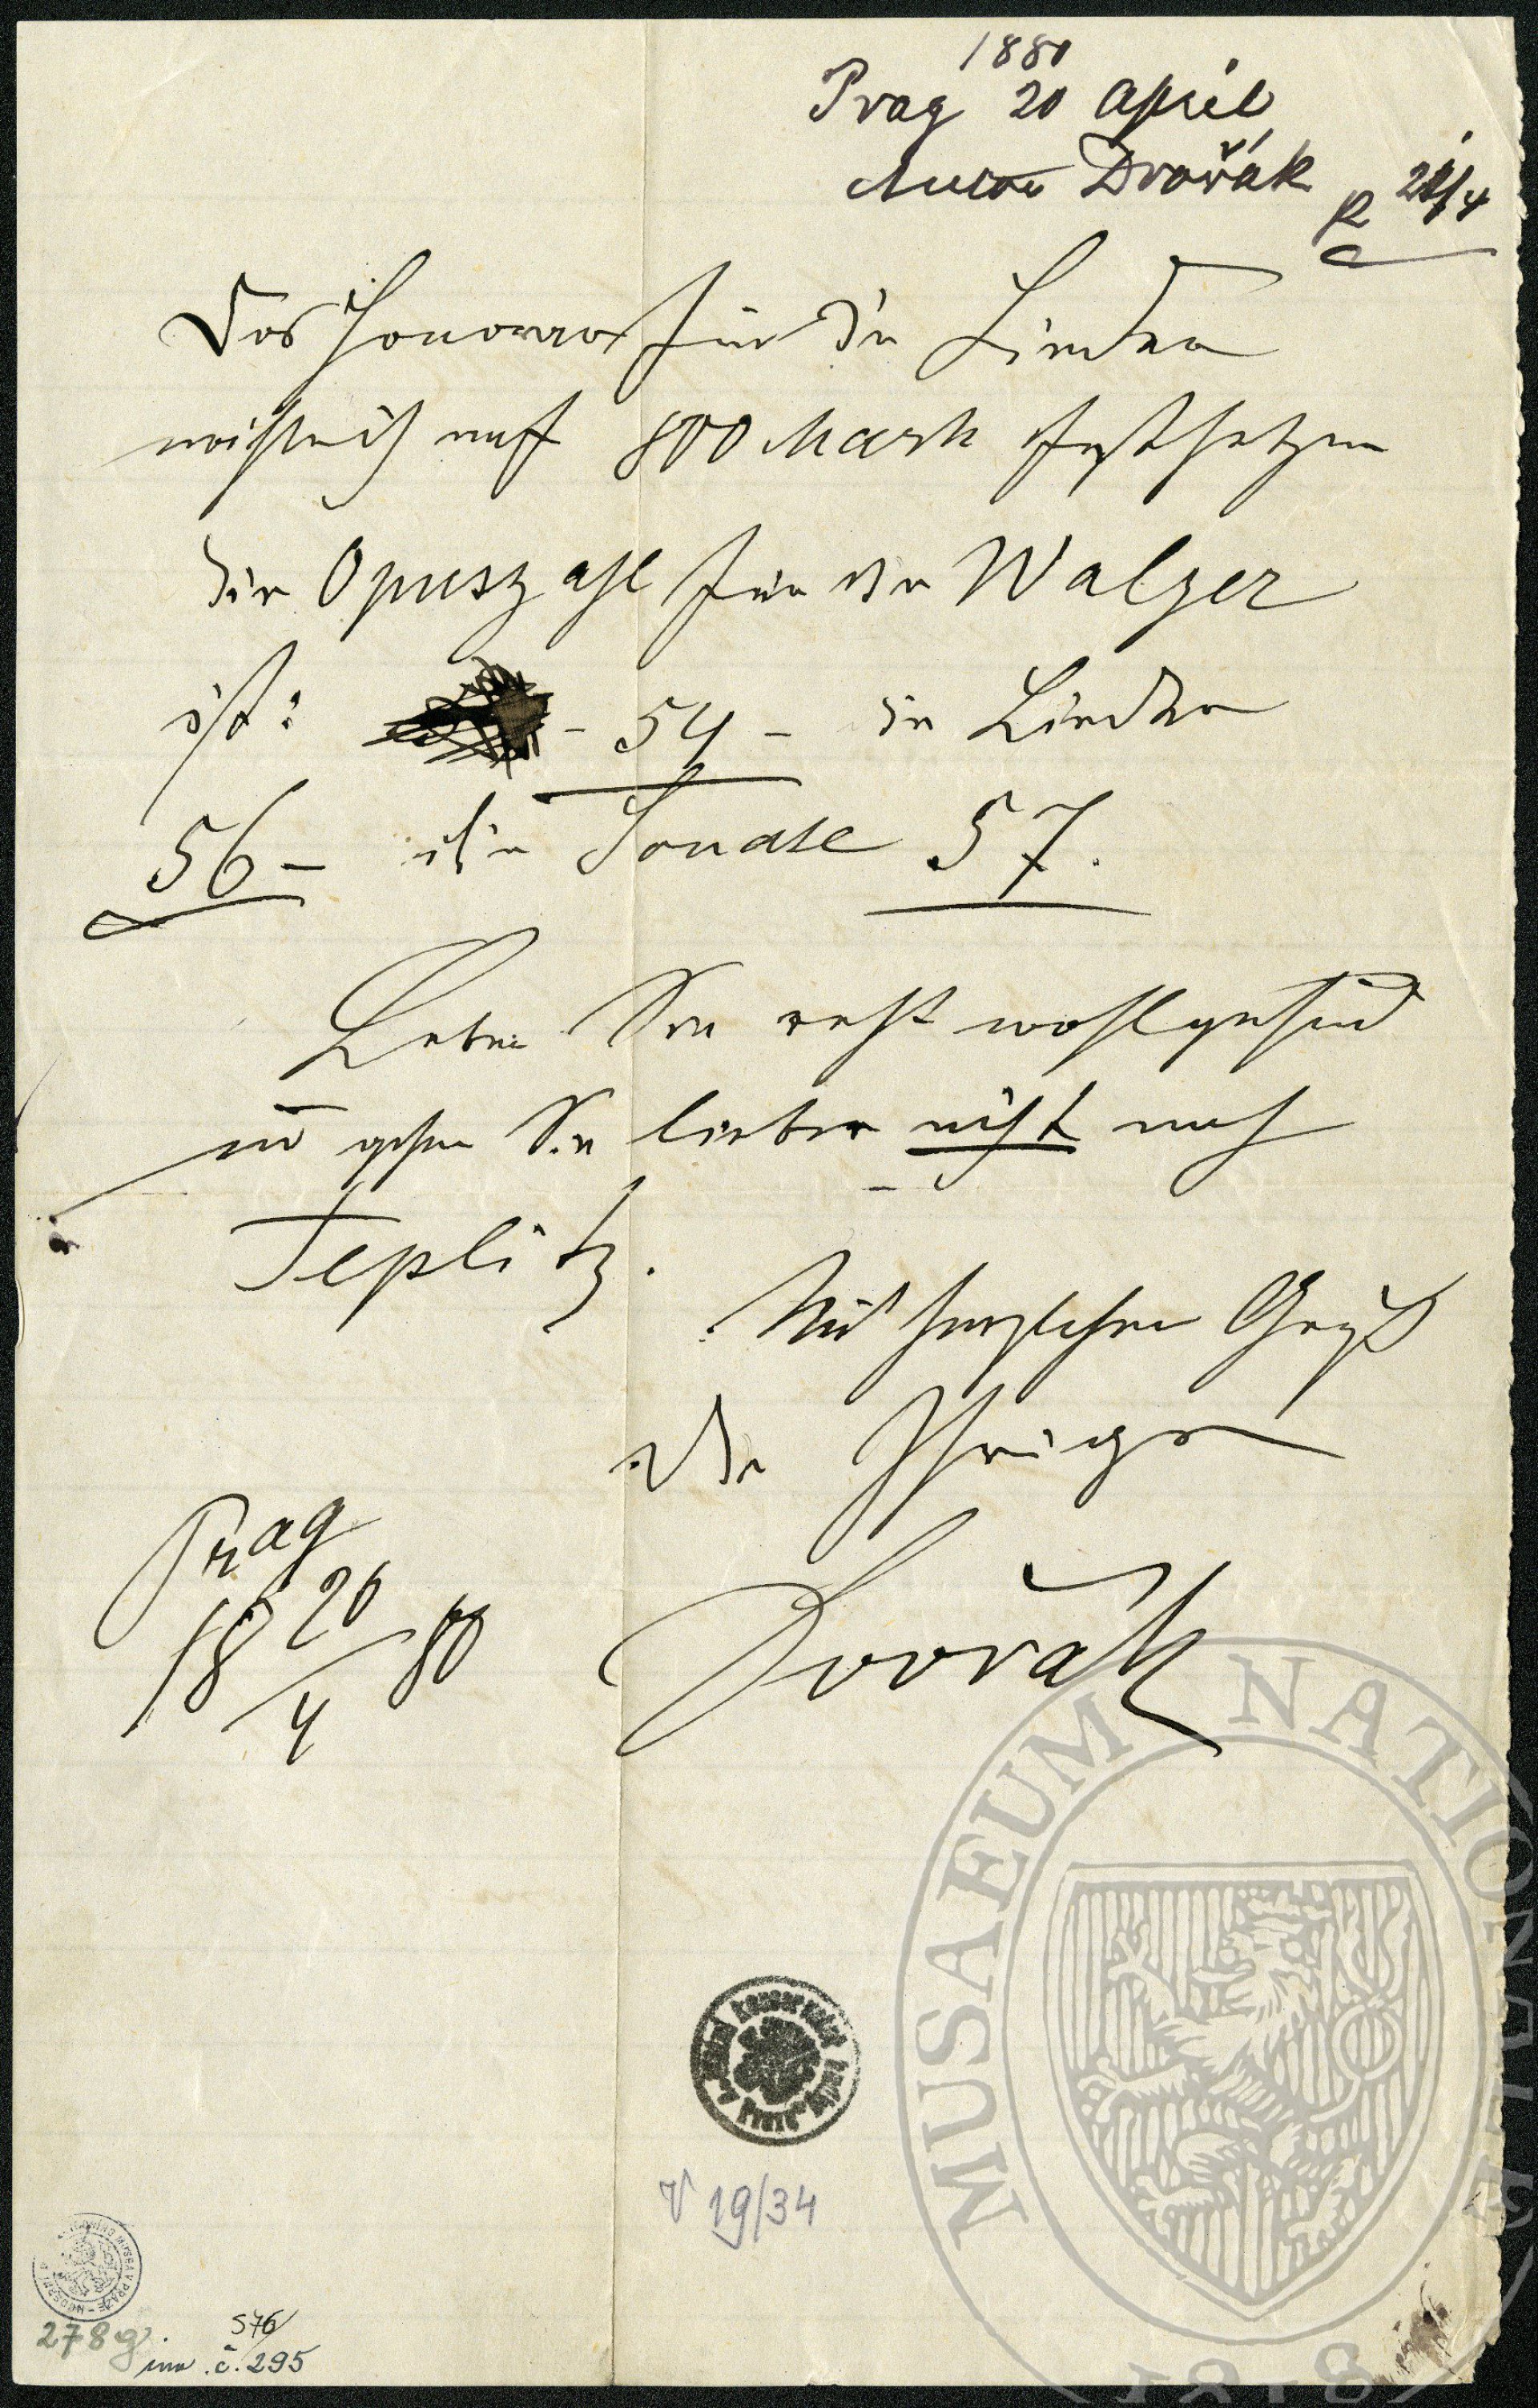 1880
Prag 20 April
Anton Dvořák R 21/4
Das Honorar für die Lieder
möchte ich auf 800 Mark festsetzen
die Opuszahl für die Walzer
ist: – 54 – die Lieder
56 – die Sonate 57.
Leben Sie recht wohl gesund
und gehen Sie lieber nicht nach
Teplitz.
Mit herzlichem Gruß
der Ihrige
Dvořák
Prag
18 20/4 80
MUSAEUM NATIONALE
1818
V 19/34
278g.
S76/
inv. č. 295